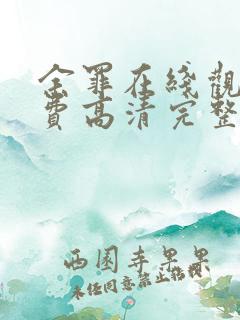 金罪在綫觀
費高清完整
西園寺果果
未经同意禁止转载